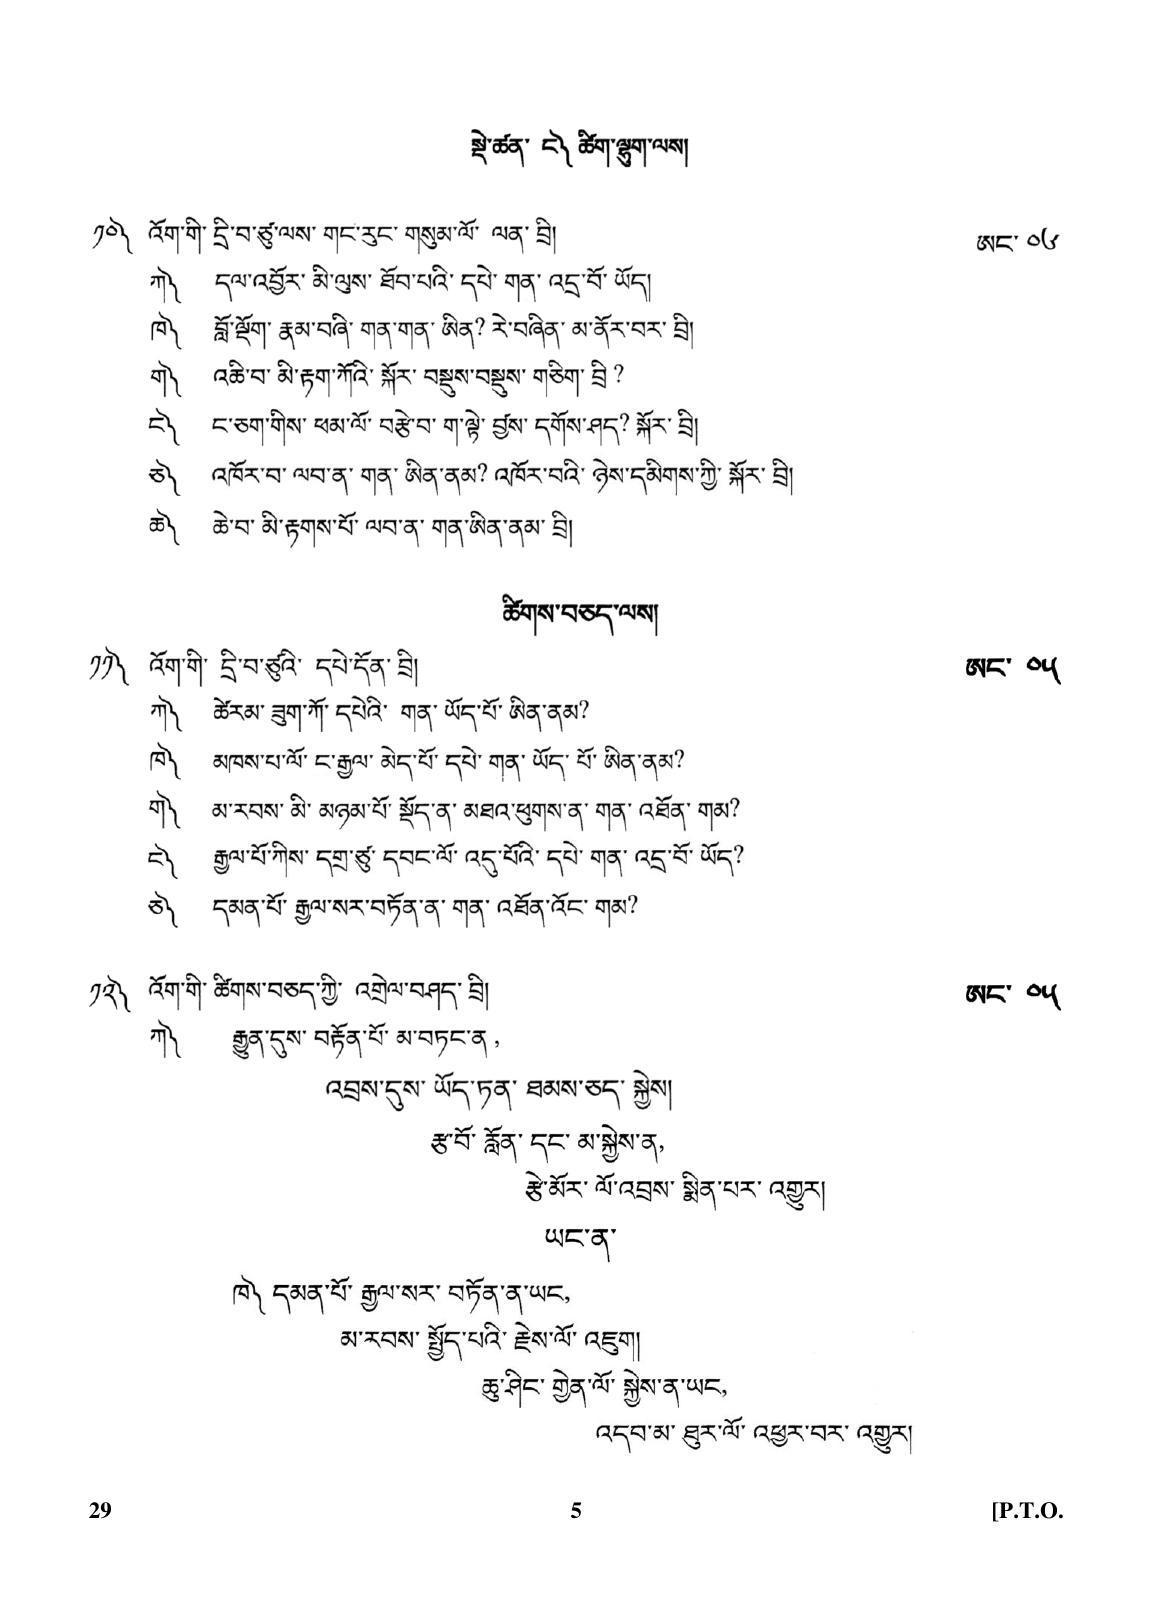 སྡེ་ཚན་ ང༽ ཚིག་ལྷུག་ལས།
༡༠༽ འོག་གི་ དྲི་བ་ཙུ་ལས་ གང་རུང་ གསུམ་ལོ་ ལན་ བྲི། ཨང་ ༠༦
ཀ༽ དལ་འབྱོར་ མི་ལུས་ ཐོབ་པའི་ དཔེ་ གན་ འདྲ་བོ་ ཡོད།
ཁ༽ བློ་ལྡོག་ རྣམ་བཞི་ གན་གན་ ཨིན? རེ་བཞིན་ མ་ནོར་བར་ བྲི།
ག༽ འཆི་བ་ མི་རྟག་ཀོའི་ སྐོར་ བསྡུས་བསྡུས་ གཅིག་ བྲི ?
ང༽ ང་ཅག་གིས་ ཕམ་ལོ་ བརྩེ་བ་ ག་ལྟེ་ བྱས་ དགོས་ཤད? སྐོར་ བྲི།
ཅ༽ འཁོར་བ་ ལབ་ན་ གན་ ཨིན་ནམ? འཁོར་བའི་ ཉེས་དམིགས་ཀྱི་ སྐོར་ བྲི།
ཆ༽ ཆེ་བ་ མི་རྟགས་པོ་ ལབ་ན་ གན་ཨིན་ནམ་ བྲི།
ཚིགས་བཅད་ལས།
༡༡༽ འོག་གི་ དྲི་བ་ཙུའི་ དཔེ་དོན་ བྲི། ཨང་ ༠༥
ཀ༽ ཚེརམ་ ཟུག་ཀོ་ དཔེའི་ གན་ ཡོད་པོ་ ཨིན་ནམ?
ཁ༽ མཁས་པ་ལོ་ ང་རྒྱལ་ མེད་པོ་ དཔེ་ གན་ ཡོད་ པོ་ ཨིན་ནམ?
ག༽ མ་རབས་ མི་ མཉམ་པོ་ སྡོད་ན་ མཐའ་ཕུགས་ན་ གན་ འཐོན་ གམ?
ང༽ རྒྱལ་པོ་ཀིས་ དགྲ་ཙུ་ དབང་ལོ་ འདུ་པོའི་ དཔེ་ གན་ འདྲ་བོ་ ཡོད?
ཅ༽ དམན་པོ་ རྒྱལ་སར་བཏོན་ན་ གན་ འཐོན་འོང་ གམ?
༡༢༽ འོག་གི་ ཚིགས་བཅད་ཀྱི་ འགྲེལ་བཤད་ བྲི། ཨང་ ༠༥
ཀ༽ རྒྱུན་དུས་ བརྟོན་པོ་ མ་བཏང་ན ,
འབྲས་དུས་ ཡོད་ཏན་ ཐམས་ཅད་ སྐྱེས།
རྩ་བོ་ རློན་ དང་ མ་སྐྱེས་ན,
རྩེ་མོར་ ལོ་འབྲས་ སྨིན་པར་ འགྱུར།
ཡང་ན་
ཁ༽ དམན་པོ་ རྒྱལ་སར་ བཏོན་ན་ཡང,
མ་རབས་ སྤྱོད་པའི་ རྗེས་ལོ་ འཇུག།
ཆུ་ཤིང་ གྱེན་ལོ་ སྐྱེས་ན་ཡང,
འདབ་མ་ ཐུར་ལོ་ འཕྱར་བར་ འགྱུར།
29 5 [P.T.O.